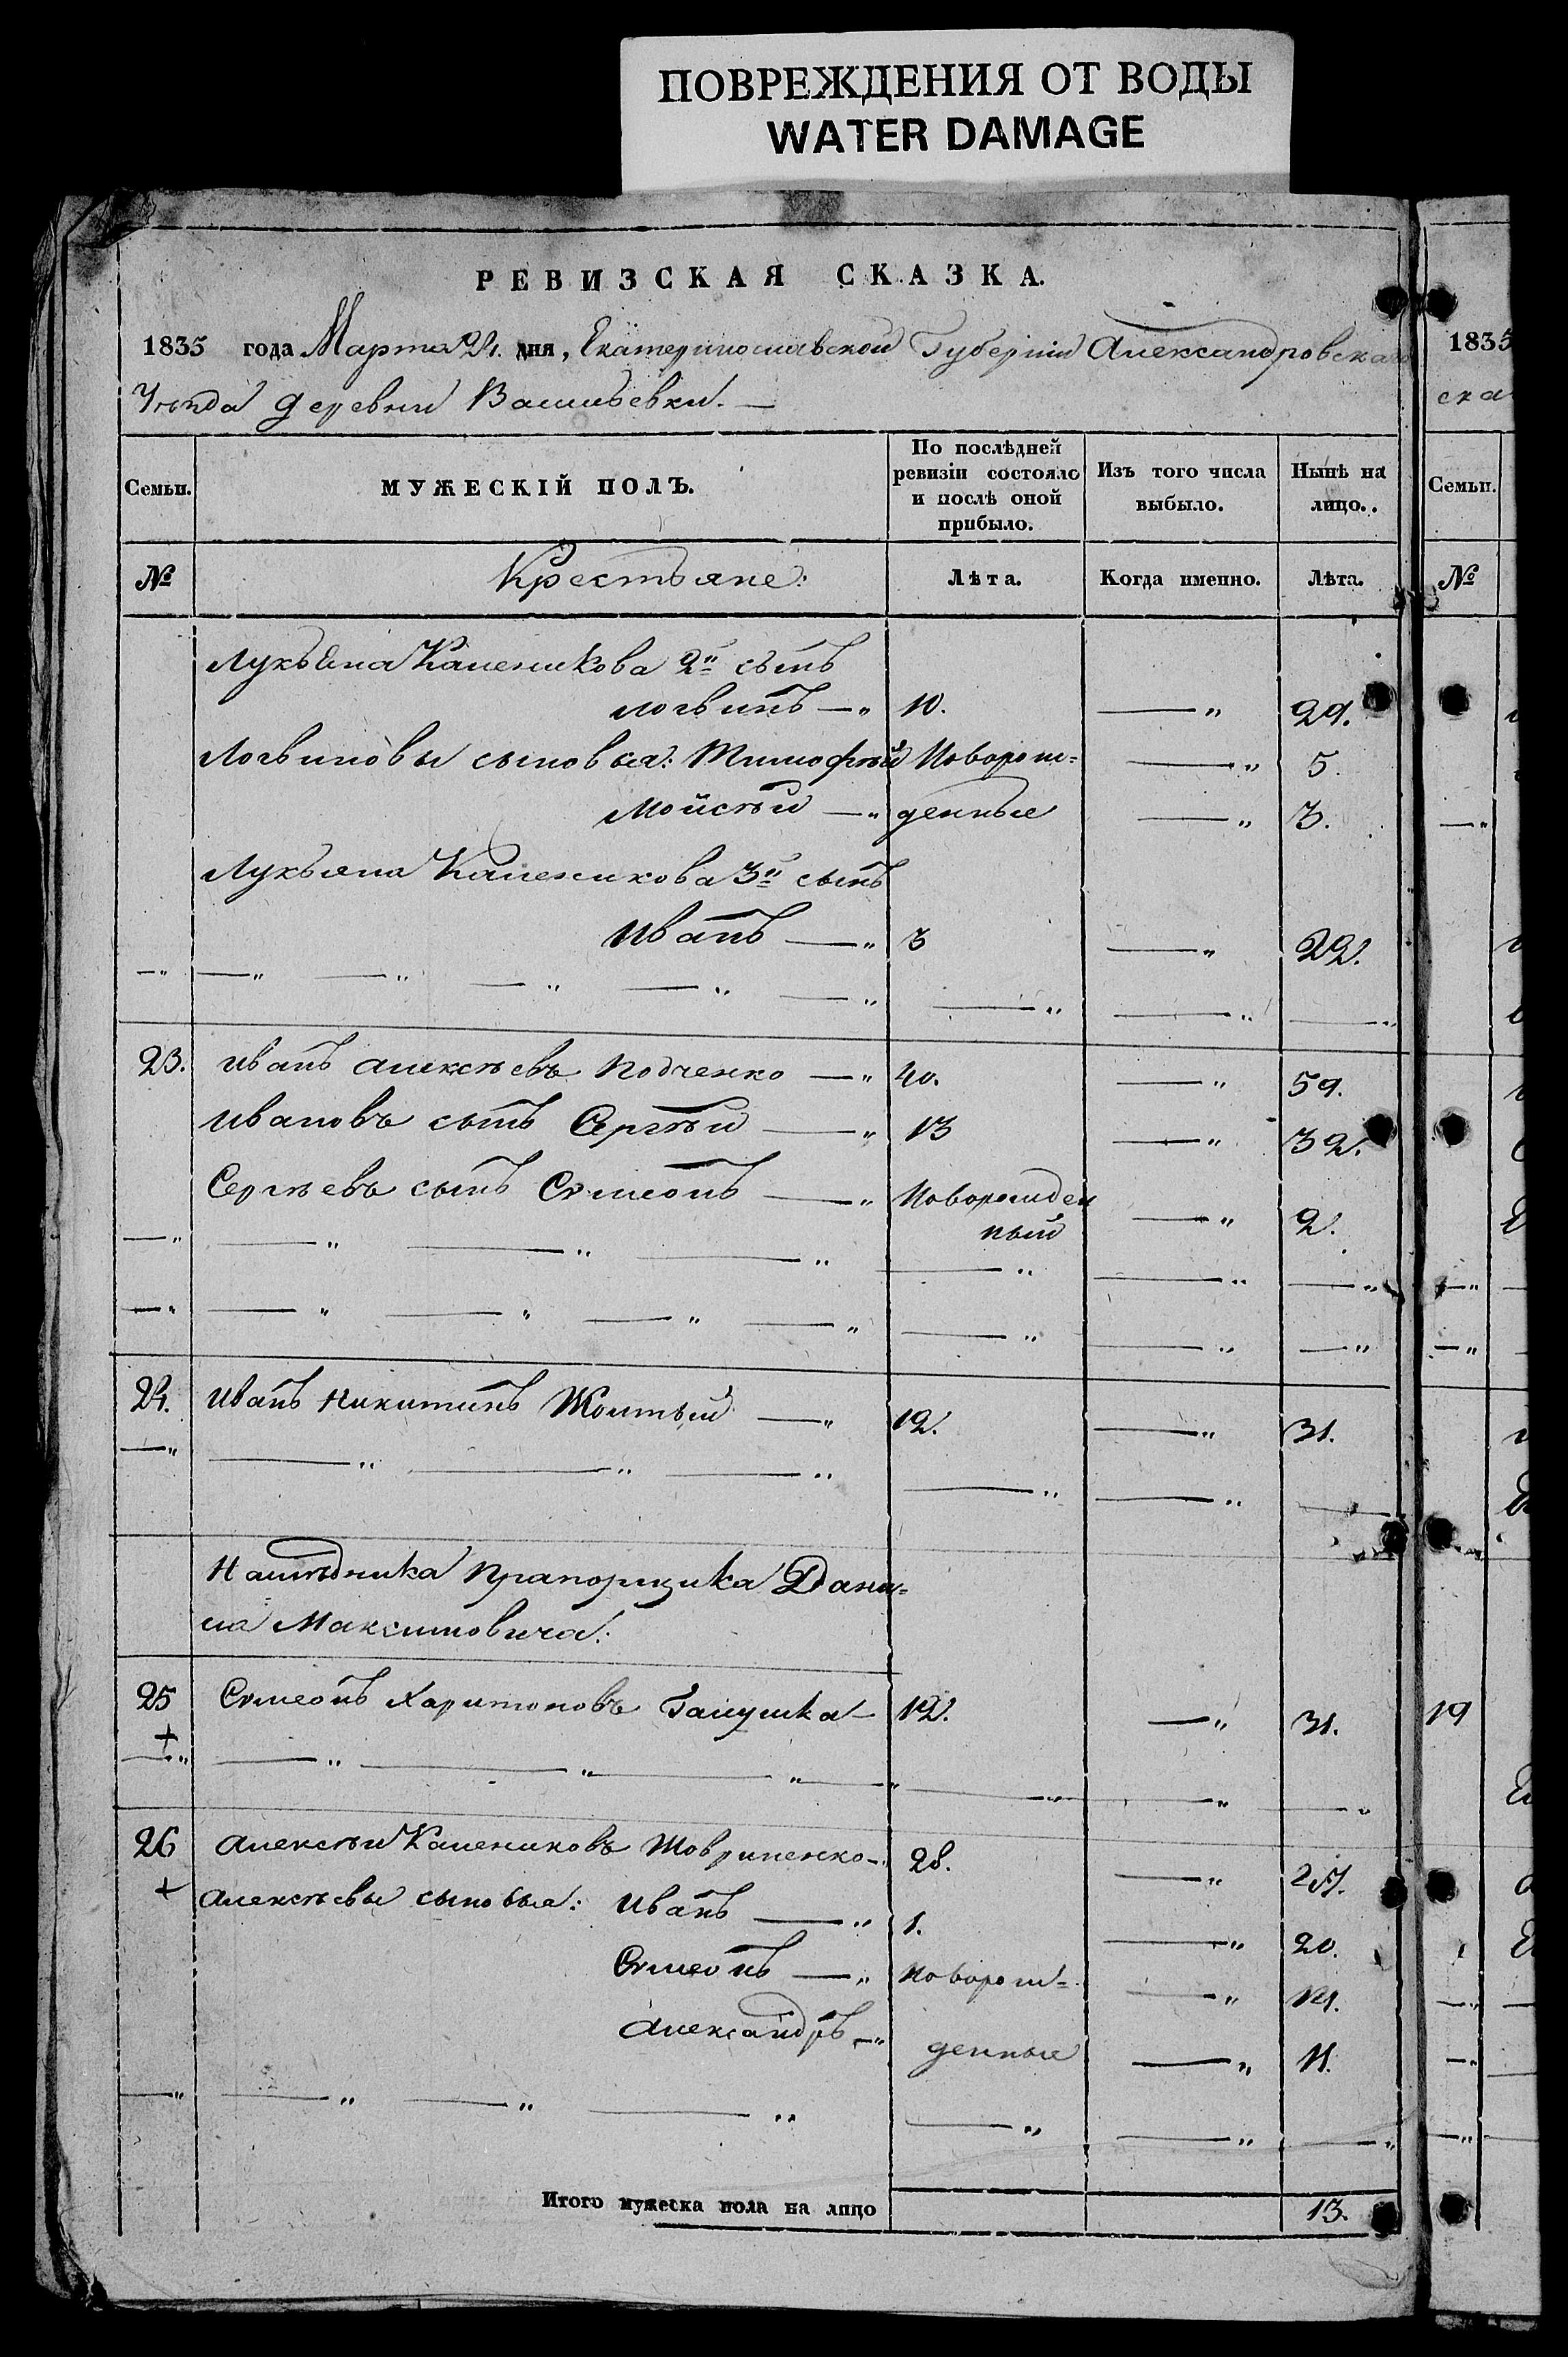 ПОВРЕЖДЕНИЯ ОТ ВОДЫ
WATER DAMAGE
РЕВИЗСКАЯ СКАЗКА.
1835 года Марта 24. дня, Екатеринославской Губерніи Александровскаго
Уѣзда деревни Васильевки. —
Семьи. МУЖЕСКІЙ ПОЛЪ. По послѣдней ревизіи состояло и послѣ оной прибыло. Изъ того числа выбыло. Нынѣ на лицо.
№ Крестьяне: Лѣта. Когда именно. Лѣта.
Лукьяна Каленикова 2й сынъ
Логвинъ —„ 10. —„ 29.
Логвиновы сыновья: Тимофѣй Новорож= —„ 5.
Мойсѣй —„ денные —„ 3.
Лукьяна Каленикова 3й сынъ
Иванъ —„ 3 —„ 22.
23. Иванъ Алексѣевъ Подченко —„ 40. —„ 59.
Ивановъ сынъ Сергѣй —„ 13 —„ 32.
Сергѣевъ сынъ Сѵмеонъ —„ Новорожден
ный —„ 2.
24. Иванъ Никитинъ Жолтый —„ 12. —„ 31.
Наслѣдника Прапорщика Дани=
ла Максимовича:
25 Сѵмеонъ Харитоновъ Галушка — 12. —„ 31.
+
26 Алексѣй Калениковъ 28. —„
+ Алексѣевы сыновья: Иванъ —„ 1. —„ 20.
Сѵмеонъ —„ Новорож= —„ 14.
Александръ —„ денные —„ 11.
Итого мужеска пола на лицо 13.
1835
ска
Семьи.
№
19